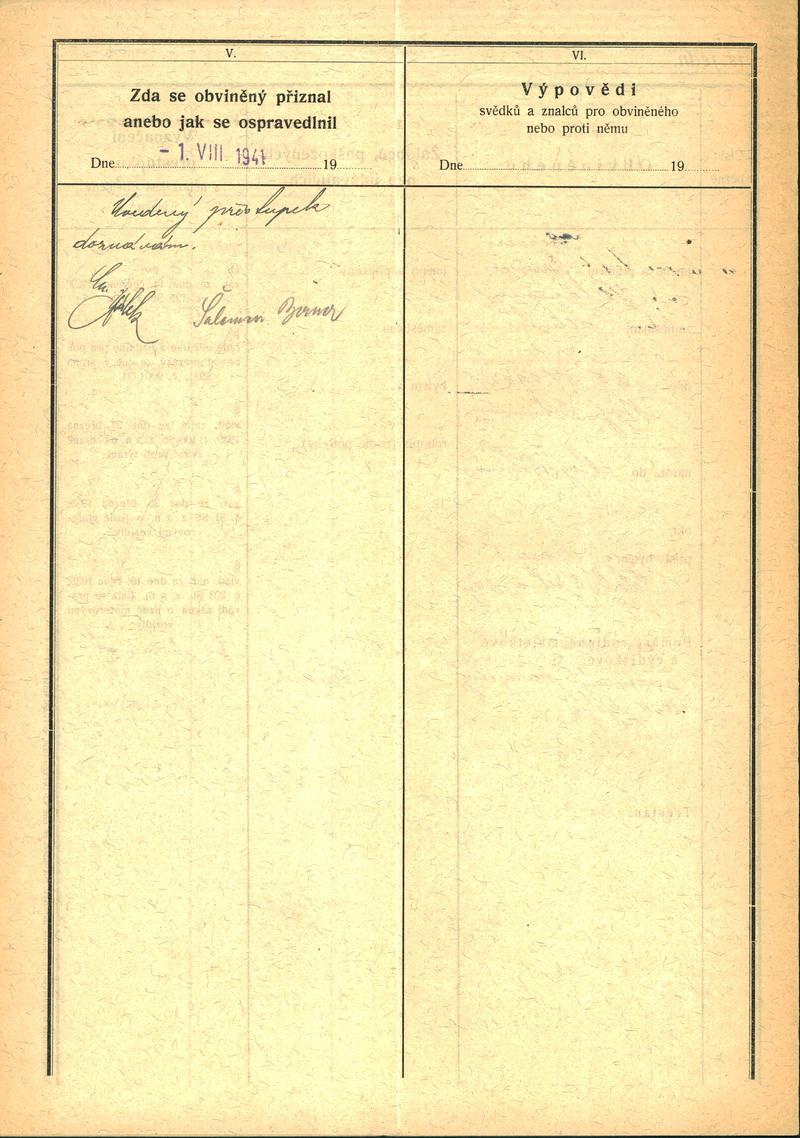 V.
Zda se obviněný přiznal
anebo jak se ospravedlnil
Dne - 1. VIII 1941 19
Uvedený přestupek
doznávám.
Šalamon Berner
VI.
Výpovědi
svědků a znalců pro obviněného
nebo proti němu
Dne 19